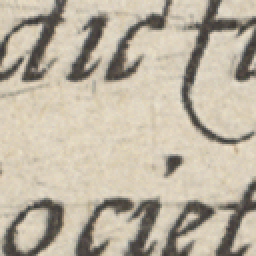 dic
ociet